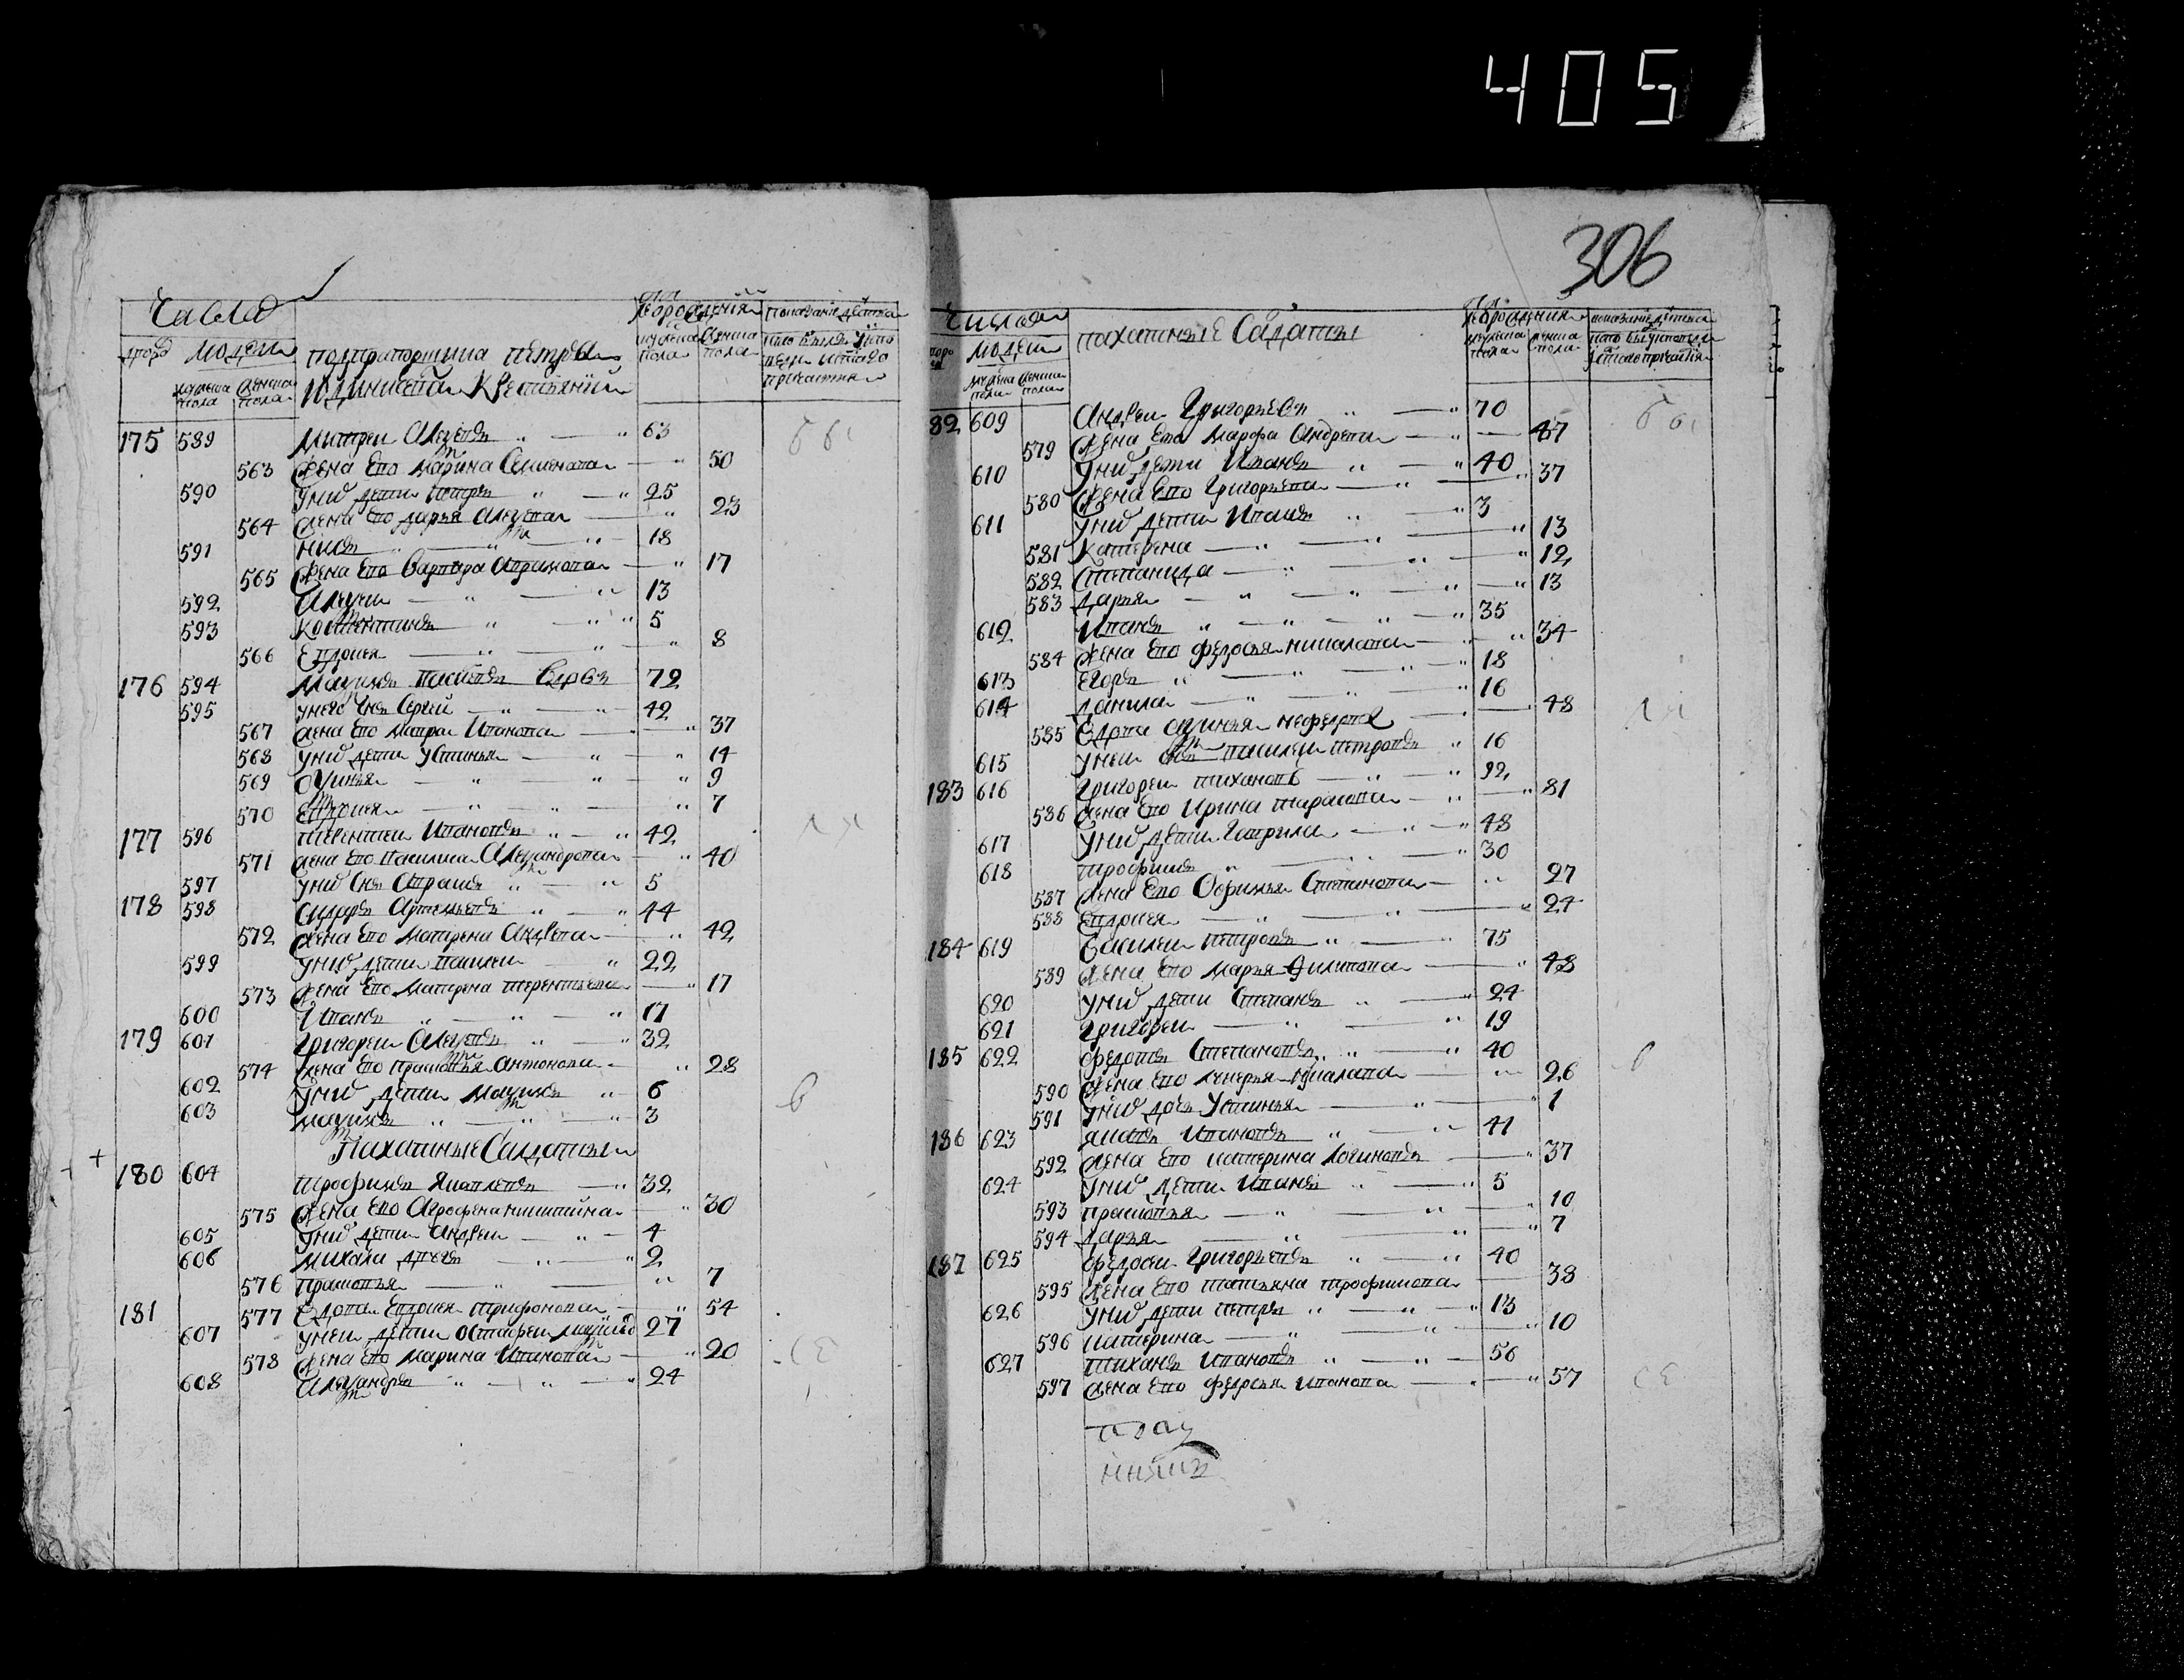 405
306
Числа
двора людеи
мужеска пола женска пола
подпрапорщика петра
Крестьяня
от рождения
мужеска пола женска пола
175 589 Матвеи Алеѯеевъ 63
563 Жена Его Марина Семенова 50
590 У них дети Петръ 25
564 Жена Его дарья Алеѯеева 23
591 18
565 Жена Его Варвара Абрамова 17
592 Алеѯеи 13
593 Костентинъ 5
566 Евдокея 8
176 594 Маѯимъ Васильевъ Вдовъ 72
595 у него Снъ Сергеи 42
567 Жена Его Мавра Иванова 37
568 У них дети Устинья 14
569 Оѯинья 9
570 Евдокея 7
177 596 Терентеи Ивановъ 42
571 Жена Его Василиса Алеѯандрова 40
597 У них Снъ Абрамъ 5
178 598 Сидоръ Артемьевъ 44
572 Жена Его Матрена Андреева 42
599 У них дети Василеи 22
573 Жена Его Матрена Терентьева 17
600 Иванъ 17
179 601 Григореи Алеѯеевъ 32
574 Жена Его Прасковья Антонова 28
602 У них дети Маѯимъ 6
603 Маѯимъ 3
Пахатные Салдаты
180 604 Трофимъ Яковлевъ 32
575 Жена Его Агрофена Никитина 30
605 У них дети Андреи 4
606 Михаила 2
576 Прасковья 7
181 577 Вдова Евдокея Трифонова 54
607 У неи дети Остафеи 27
578 Жена Его Марина Иванова 20
608 Алеѯандръ 24
Числа
людеи
мужеска пола женска пола
пахатные Салдаты
от рождения
мужеска пола женска пола
82 609 Андреи Григорьевъ 70
579 Жена Его Марфа Андреева 67
610 У них дети Иванъ 40
580 Жена Его Григорьева 37
611 У них дети Иванъ 3
581 Катерена 13
582 Степанида 12
583 Дарья 13
612 Иванъ 35
584 Жена Его Федосья Николаева 34
613 Егоръ 18
614 Данила 16
585 Вдова Оѯинья Нефедова 48
615 У неи Снъ Василеи Петровъ 16
183 616 Григореи Тихановъ 92
586 Жена Его Ирина Тарасова 81
617 У них дети Гаврила 48
618 Трофимъ 30
587 Жена Его Офимья Степанова 27
588 Евдокея 24
184 619 Василеи Петровъ 75
589 Жена Его Марья Филипова 48
620 У них дети Степанъ 24
621 Григореи 19
185 622 Федотъ Степановъ 40
590 Жена Его 26
591 У них дочь Устинья 1
186 623 Яковъ Ивановъ 41
592 Жена Его Катерина Логинова 37
624 У них дети Иванъ 5
593 Прасковья 10
594 Дарья 7
187 625 Федосеи Григорьевъ 40
595 Жена Его Татьяна Трофимова 38
626 У них дети Петръ 13
596 Катерина 10
627 Тиханъ Ивановъ 56
597 Жена Его Федосья Иванова 57